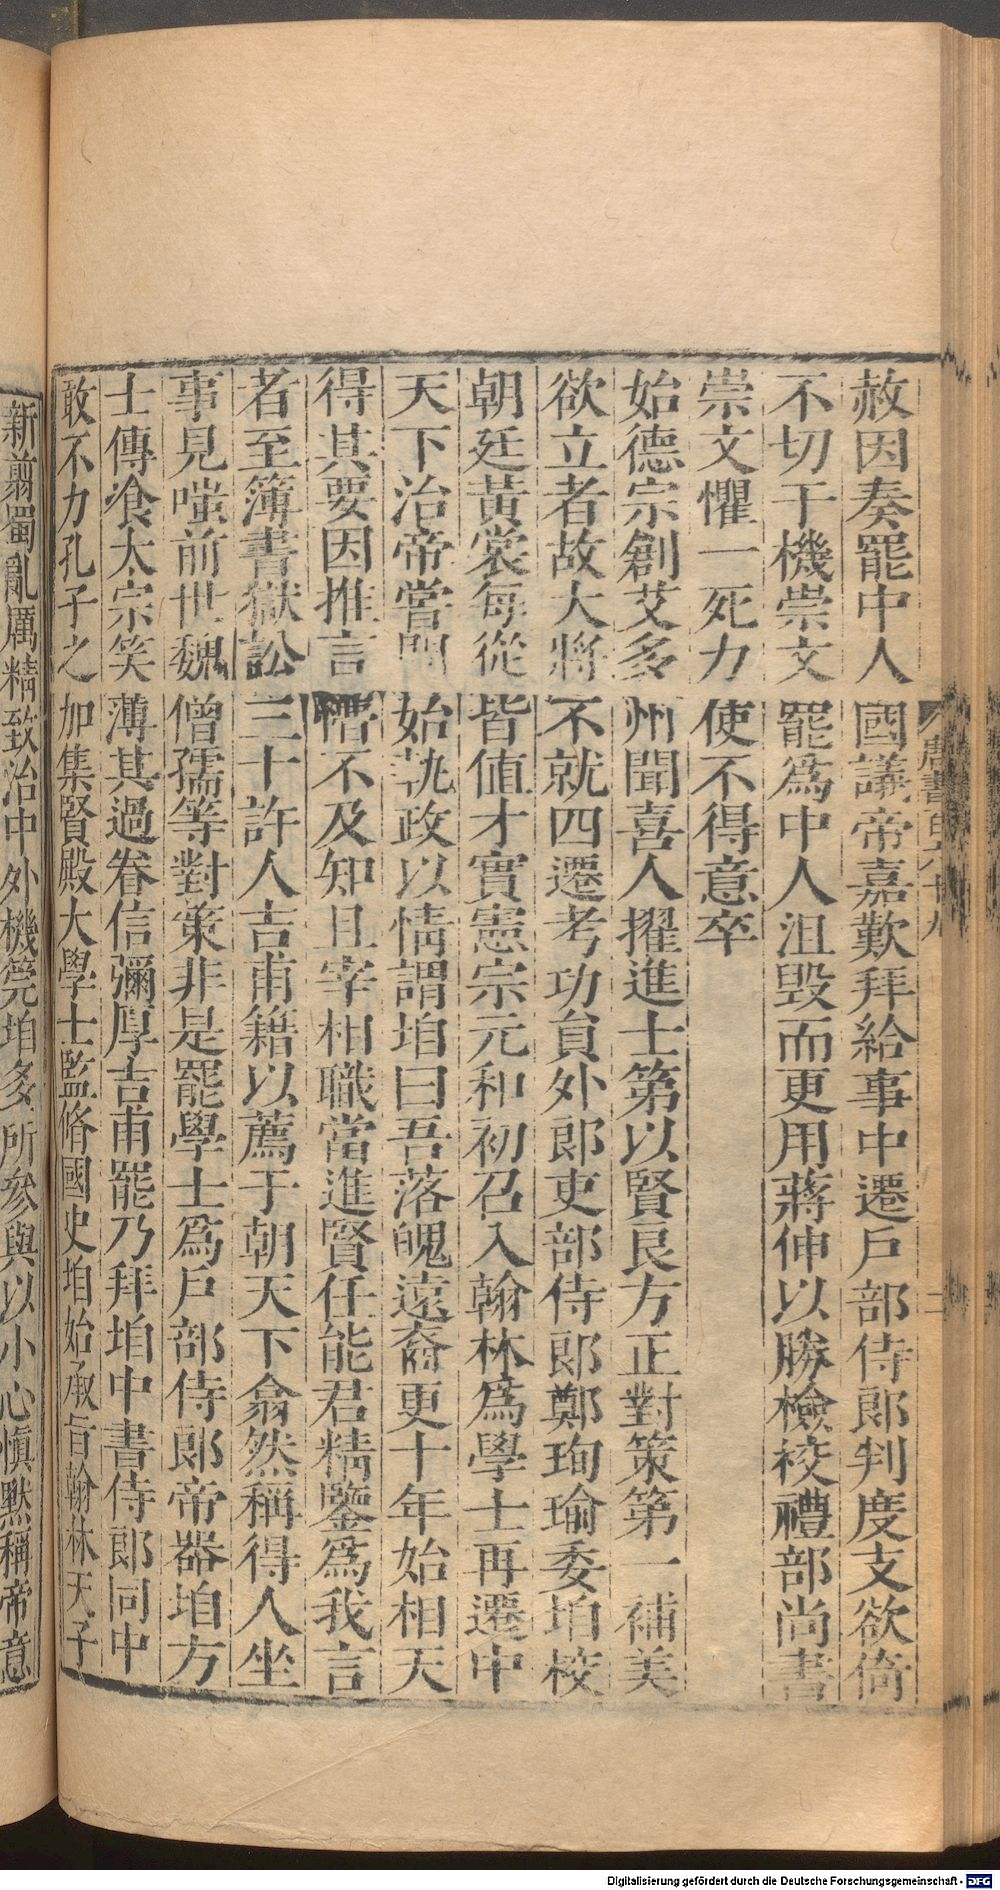 唐書百六十九 二
赦因奏罷中人國議帝嘉歎拜給事中遷戶部侍郎判度支欲倚
不切于機崇文罷爲中人沮毀而更用蔣伸以勝檢挍禮部尚書
崇文懼一死力使不得意卒
始德宗創艾多州聞喜人擢進士第以賢良方正對策第一補美
欲立者故大將不就四遷考功員外郎吏部侍郎鄭珣瑜委垍校
朝廷黃裳每從皆值才實憲宗元和初召入翰林爲學士再遷中
天下治帝嘗問始執政以情謂垍曰吾落魄遠裔更十年始相天
得其要因推言懵不及知且宰相職當進賢任能君精鑒爲我言
者至簿書獄訟三十許人吉甫籍以薦于朝天下翕然稱得人坐
事見嗤前世魏僧孺等對策非是罷學士爲戶部侍郎帝器垍方
士傳飡太宗笑薄其過眷信彌厚吉甫罷乃拜垍中書侍郎同中
敢不力孔子之加集賢殿大學士監脩國史垍始承旨翰林天子
新翦蜀亂厲精致治中外機筦垍多所參與以小心慎默稱帝意
Digitalisierung gefördert durch die Deutsche Forschungsgemeinschaft - DFG